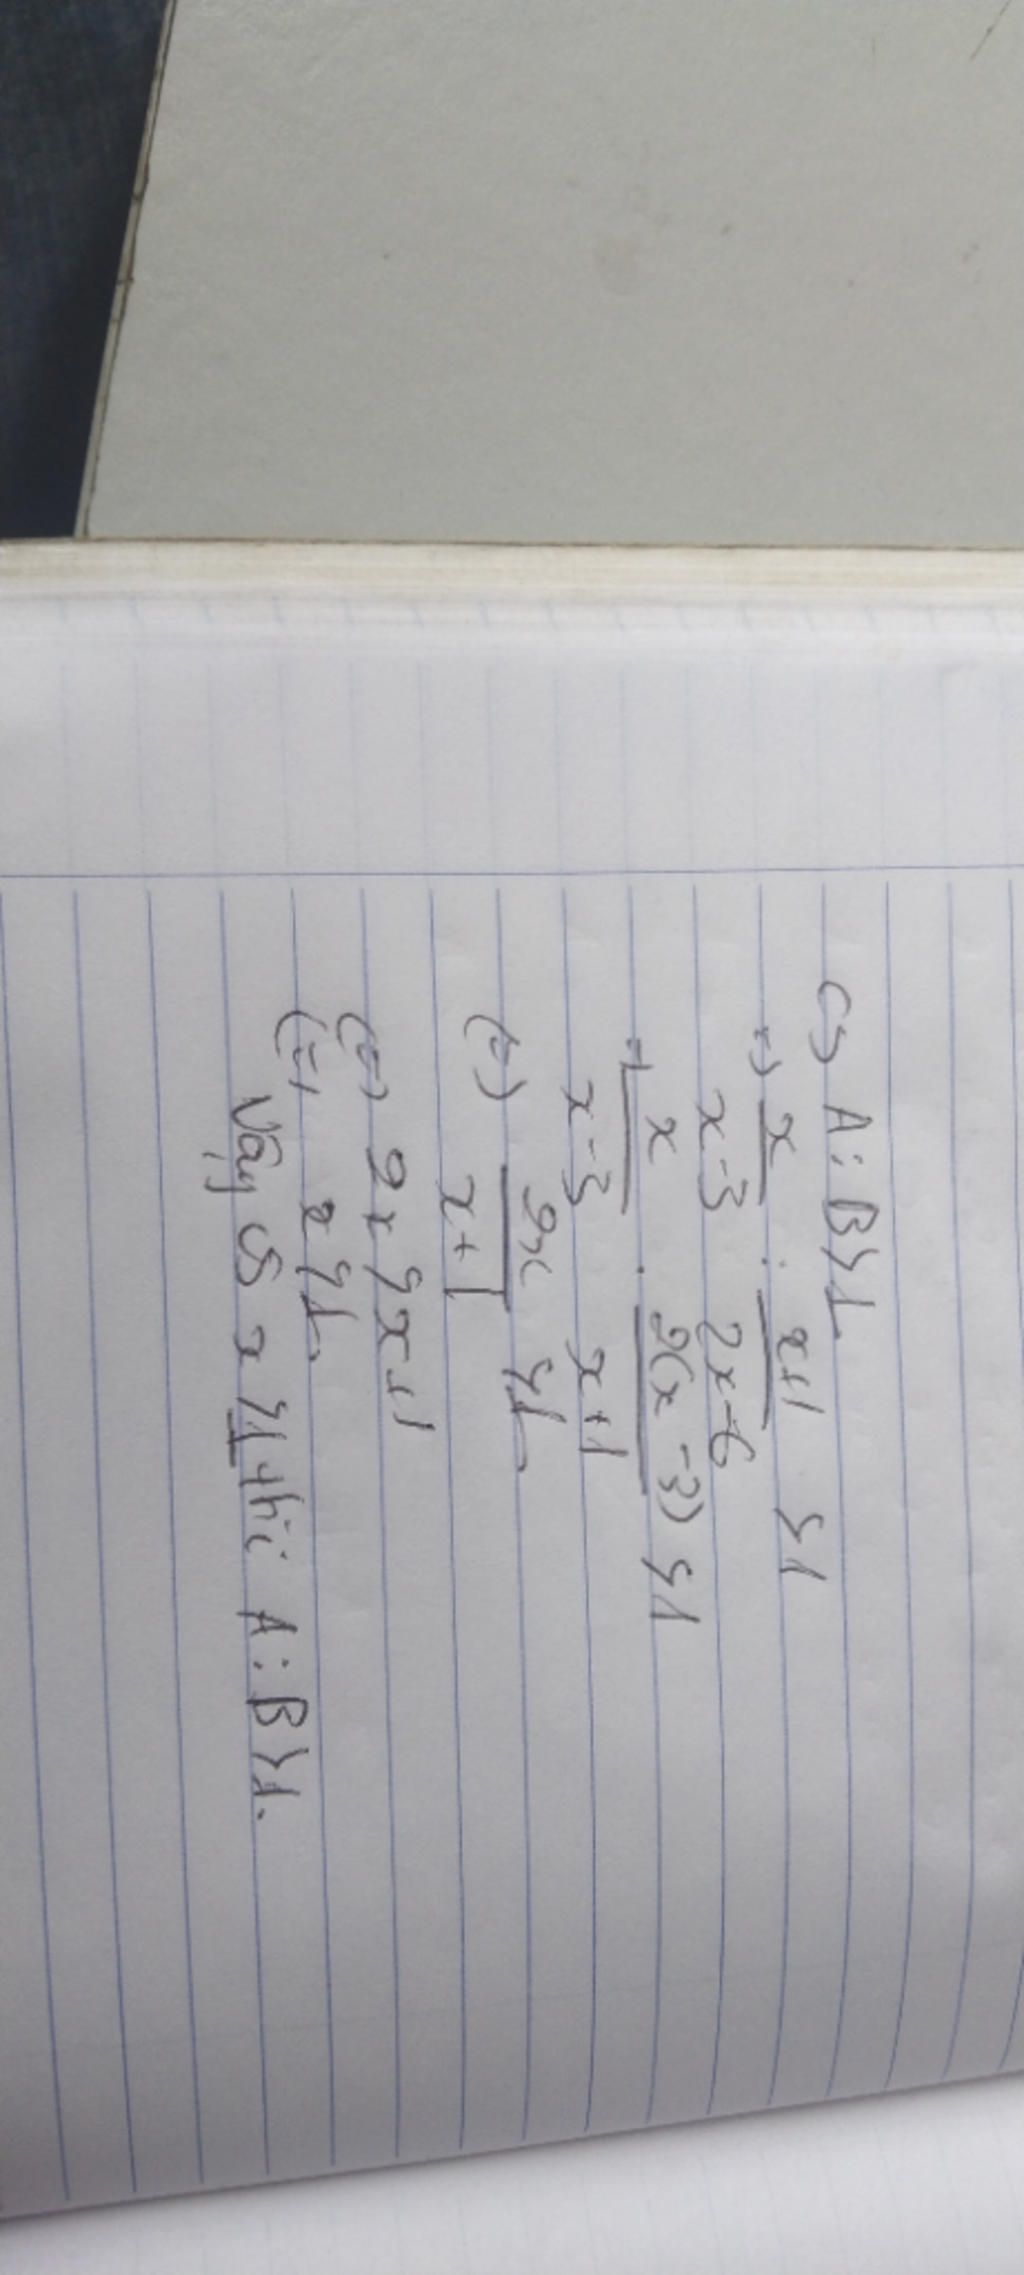 c) A : B > 1
=> x/(x-3) : (x+1)/(2x-6) > 1
=> x/(x-3) . 2(x-3)/(x+1) > 1
(=) 2x/(x+1) > 1
(=) 2x > x+1
(=) x > 1.
Vậy x > 1 thì A : B > 1.